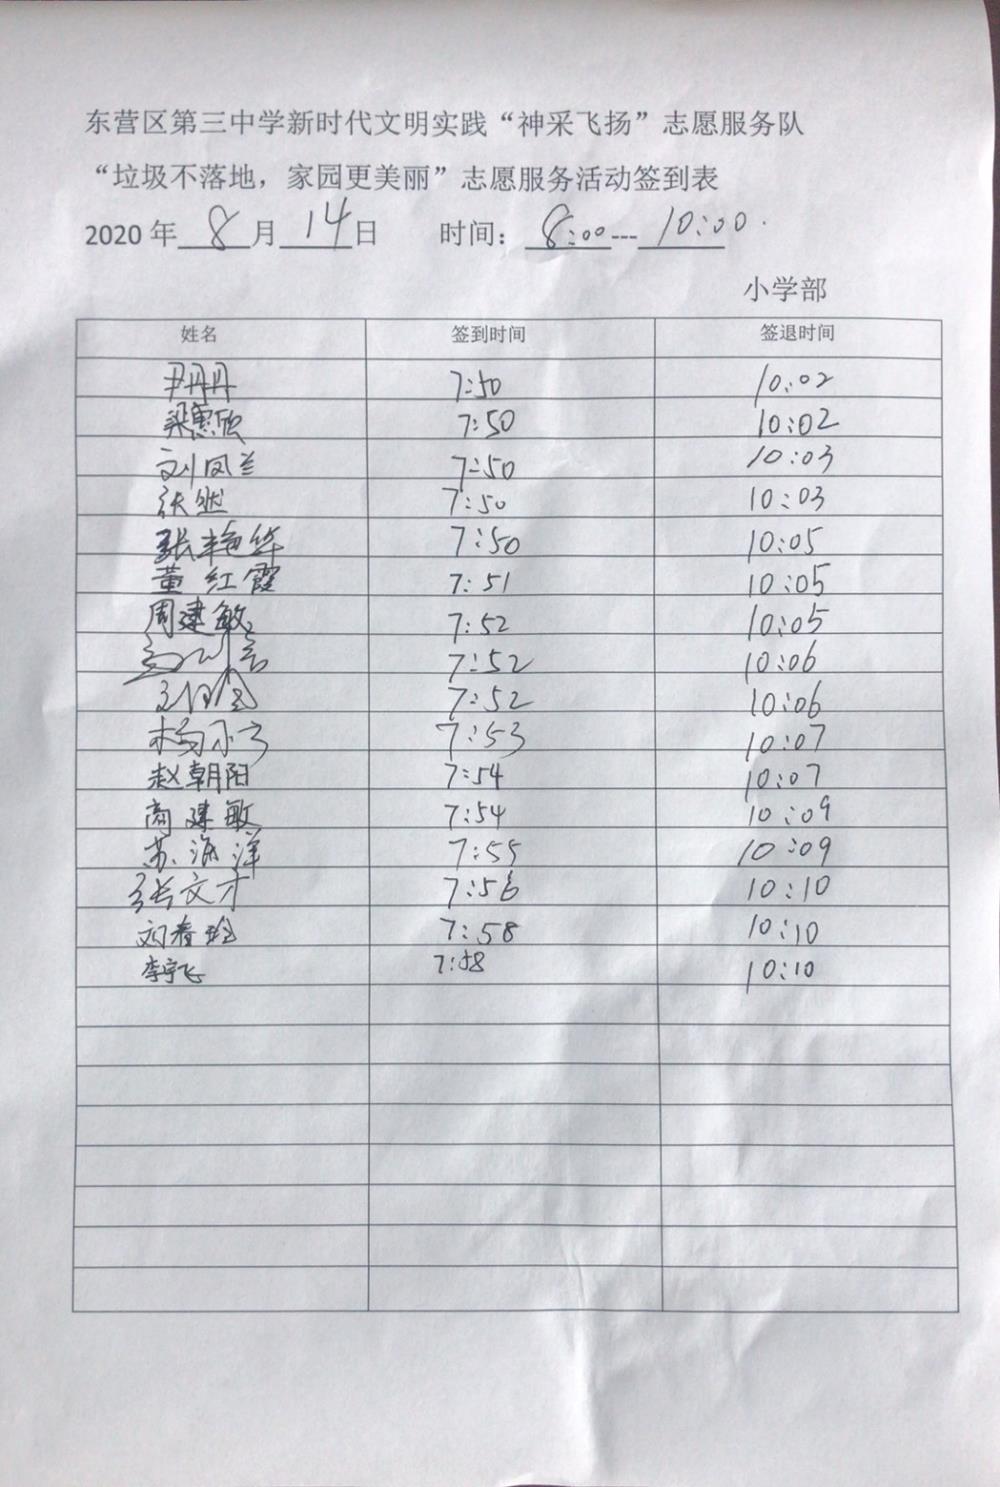 东营区第三中学新时代文明实践“神采飞扬”志愿服务队
“垃圾不落地，家园更美丽”志愿服务活动签到表
2020年 8 月 14 日 时间：8:00---10:00.
小学部
姓名 签到时间 签退时间
尹丹丹 7:50 10:02
梁惠欣 7:50 10:02
刘凤兰 7:50 10:03
张然 7:50 10:03
张艳华 7:50 10:05
董红霞 7:51 10:05
周建敏 7:52 10:05
7:52 10:06
7:52 10:06
杨 7:53 10:07
赵朝阳 7:54 10:07
商建敏 7:54 10:09
苏海洋 7:55 10:09
张文才 7:56 10:10
刘春玲 7:58 10:10
李宇飞 7:58 10:10